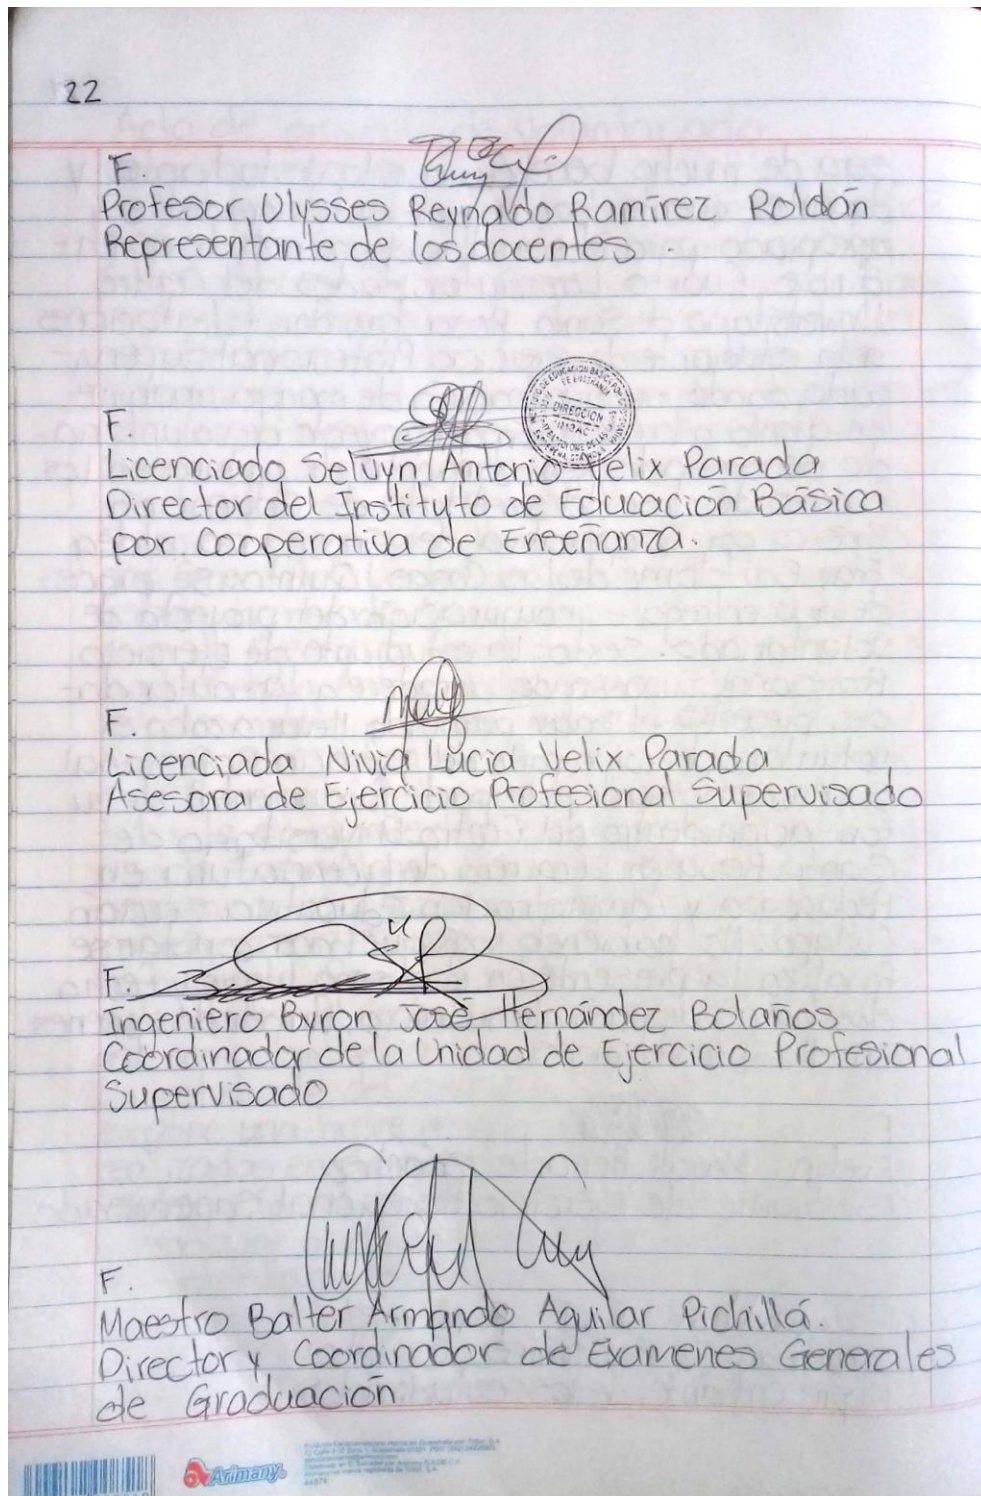 22
F.
Profesor, Ulysses Reynaldo Ramírez Roldán
Representante de los docentes.
F.
DIRECCION
Licenciado Selvyn Antonio Velix Parada
Director del Instituto de Educación Básica
por Cooperativa de Enseñanza.
F.
Licenciada Nivia Lucia Velix Parada
Asesora de Ejercicio Profesional Supervisado
F.
Ingeniero, Byron José Hernández Bolaños
Coordinador de la Unidad de Ejercicio Profesional
Supervisado
F.
Maestro Balter Armando Aguilar Pichillá.
Director y Coordinador de Examenes Generales
de Graduación
Arimany